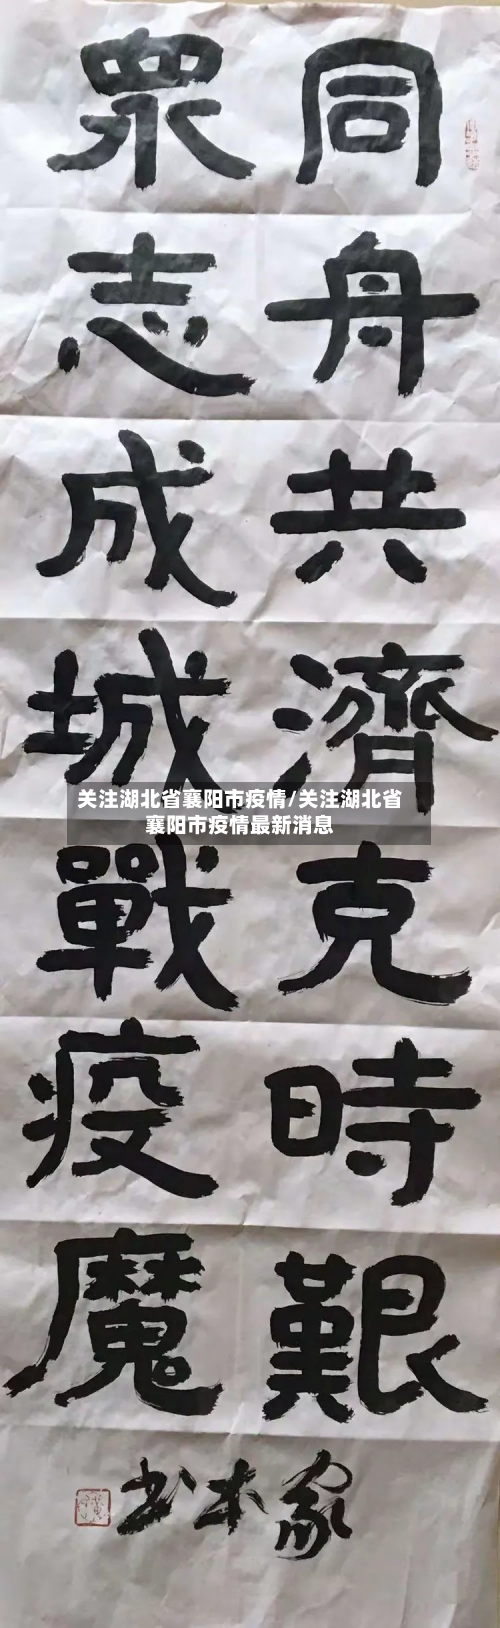 同舟共濟克時艱
眾志成城戰疫魔
关注湖北省襄阳市疫情/关注湖北省
襄阳市疫情最新消息
家本书